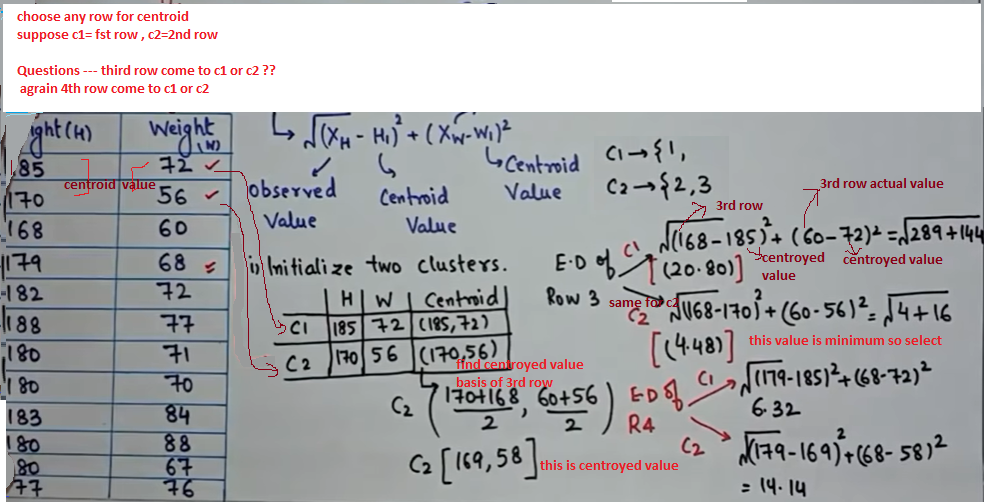 choose any row for centroid
suppose c1= fst row , c2=2nd row
Questions --- third row come to c1 or c2 ??
agrain 4th row come to c1 or c2
ight(H) Weight (W)
85 72
170 56
168 60
179 68
182 72
188 77
180 71
180 70
183 84
180 88
80 67
77 76
centroid value
√(X_H - H_1)² + (X_W - W_1)²
observed Value
Centroid Value
Centroid Value
i) Initialize two clusters.
H W Centroid
C1 185 72 (185,72)
C2 170 56 (170,56)
find centroyed value
basis of 3rd row
C2 (170+168/2, 60+56/2)
C2 [169,58]
this is centroyed value
C1→{1,
C2→{2,3
3rd row
3rd row actual value
E.D of Row 3
C1 √(168-185)² + (60-72)² = √289+144
[(20.80)]
centroyed value
centroyed value
same for c2
C2 √(168-170)² + (60-56)² = √4+16
[(4.48)]
this value is minimum so select
E.D of R4
C1 √(179-185)² + (68-72)²
6.32
C2 √(179-169)² + (68-58)²
= 14.14